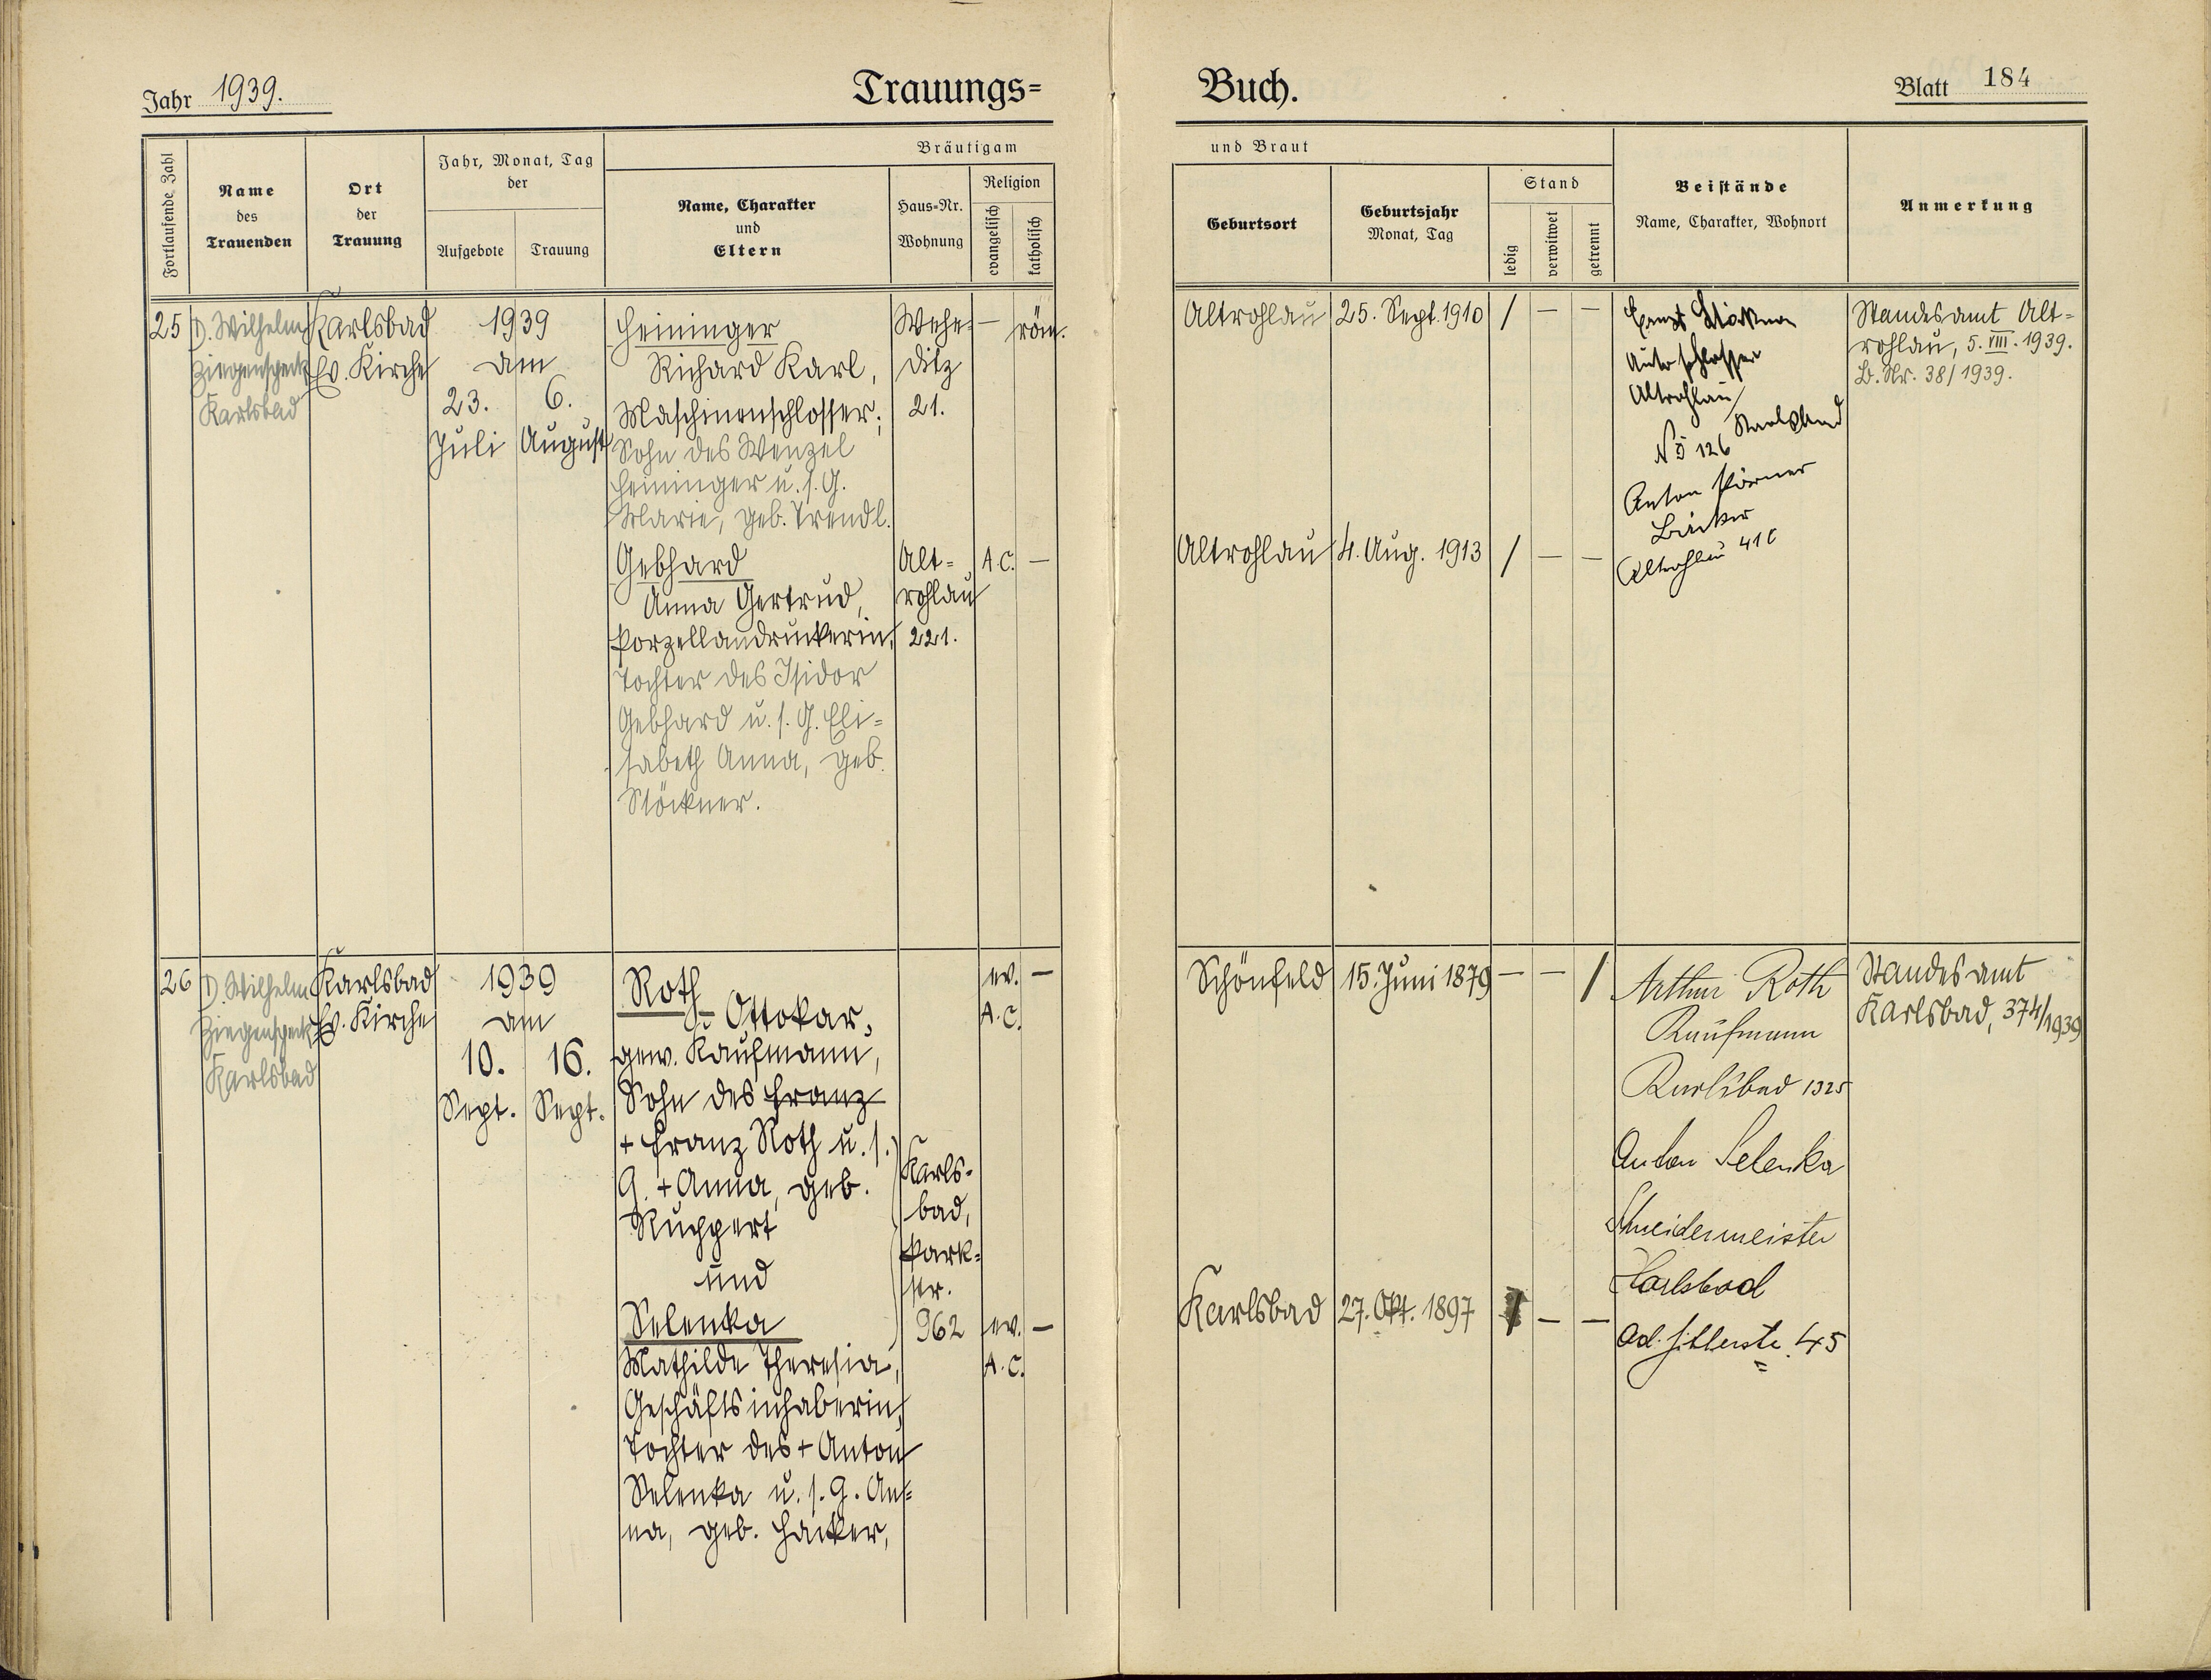 Jahr 1939.
Trauungs=
Buch.
Blatt 184
Fortlaufende Zahl
Name
des
Trauenden
Ort
der
Trauung
Jahr, Monat, Tag
der
Aufgebote
Trauung
Bräutigam
Name, Charakter
und
Eltern
Haus=Nr.
Wohnung
Religion
evangelisch
katholisch
und Braut
Geburtsort
Geburtsjahr
Monat, Tag
Stand
ledig
verwitwet
getrennt
Beistände
Name, Charakter, Wohnort
Anmerkung
25
D. Wilhelm
Ziegenspeck
Karlsbad
Karlsbad
Ev. Kirche
1939
am
23.
Juli
6.
August
Heininger
Richard Karl,
Maschinenschlosser;
Sohn des Wenzel
Heininger u. s. G.
Marie, geb. Trendl.
Wehe-
ditz
21.
—
röm.
Altrohlau
25. Sept. 1910
/ — —
Ernst Stöckner
Autoschlosser
Altrohlau/
Karlsbad
No 126
Anton
Bäcker
Altrohlau
Standesamt Alt-
rohlau, 5. VIII. 1939.
B. Nr. 38/1939.
Gebhard
Anna Gertrud,
Porzellandruckerin,
Tochter des Isidor
Gebhard u. s. G. Eli=
sabeth Anna, geb.
Stöckner.
Alt=
rohlau
221.
A.C.
—
Altrohlau
4. Aug. 1913
/ — —
26
D. Wilhelm
Ziegenspeck
Karlsbad
Karlsbad
Ev. Kirche
1939
am
10.
Sept.
16.
Sept.
Roth
Ottokar,
gew. Kaufmann,
Sohn des Franz
+ Franz Roth u. s.
G. + Anna, geb.
Ruppert
und
Karls-
bad,
Park=
str.
962
ev.
A.C.
—
Schönfeld
15. Juni 1879
— — /
Arthur Roth
Kaufmann
Karlsbad 1325
Anton Selenka
Schneidermeister
Karlsbad
Ad. Hitlerstr. 45
Standesamt
Karlsbad, 374/1939
Selenka
Mathilde Theresia,
Geschäftsinhaberin,
Tochter des + Anton
Selenka u. s. G. An=
na, geb. Hacker,
ev.
A.C.
—
Karlsbad
27. Okt. 1897
/ — —